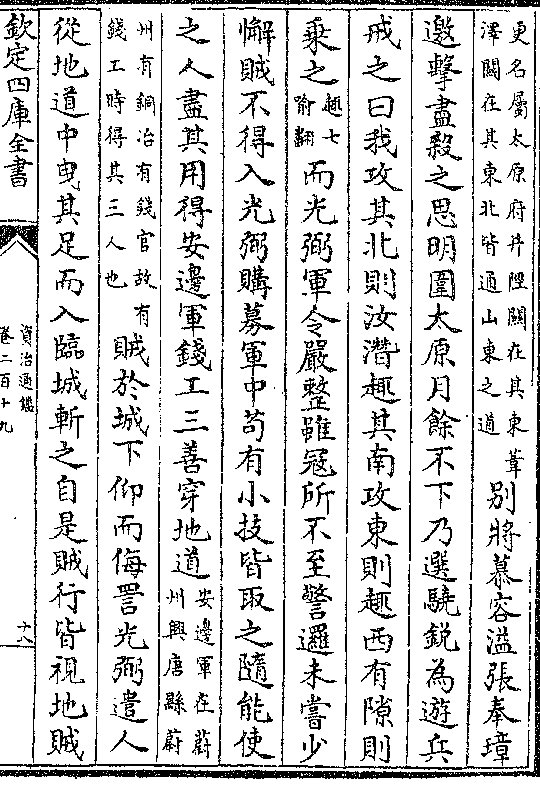 更名屬太原府井陘關在其東葦
澤關在其東北皆通山東之道
別將慕容溢張奉璋
邀擊盡殺之思明圍太原月餘不下乃選驍銳為遊兵
戒之曰我攻其北則汝濳趣其南攻東則趣西有隙則
乘之
趣七
喻翻
而光弼軍令嚴整雖冦所不至警邏未嘗少
懈賊不得入光弼購募軍中苟有小技皆取之隨能使
之人盡其用得安邊軍錢工三善穿地道
安邊軍在蔚
州興唐縣蔚
州有銅冶有錢官故有
錢工時得其三人也
賊於城下仰而侮詈光弼遣人
從地道中曳其足而入臨城斬之自是賊行皆視地賊
欽定四庫全書
資治通鑑
卷二百十九
十八